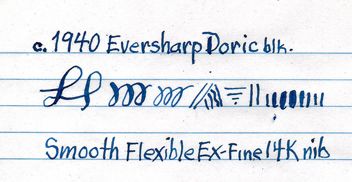 c. 1940 Eversharp Doric blk.
Smooth Flexible Ex-Fine 14K nib